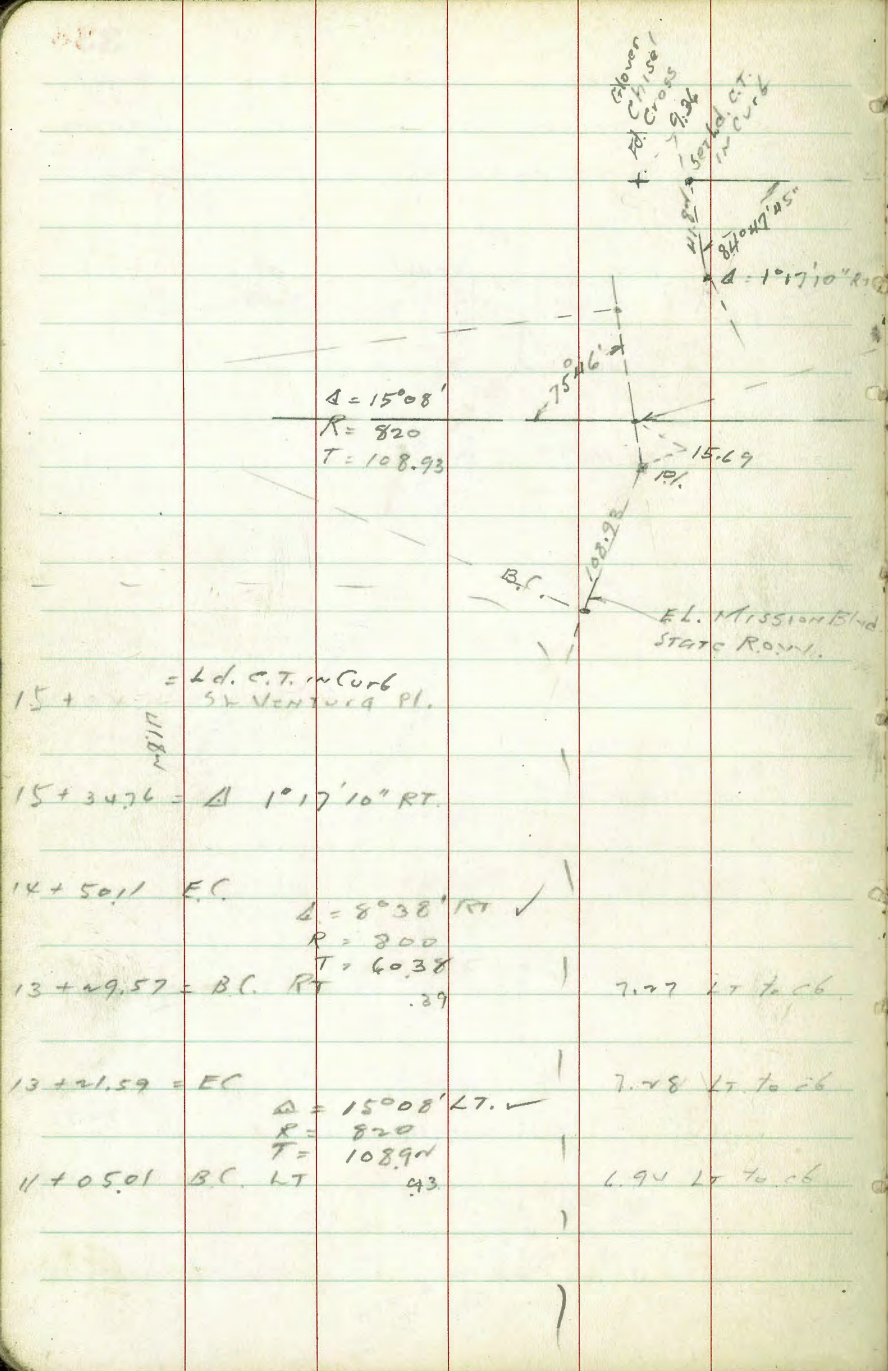 Glover
Fd. Chisel
Cross
9.36
Set Ld. C.T.
IN Curb
41.82
84°47'45"
Δ = 1°17'10" RT
75°46'
Δ = 15°08'
R = 820
T = 108.93
15.69
P.I.
108.93
B.C.
EL. MISSION Blvd.
STATE R.O.W.
= Ld. C.T. IN Curb
15 + SL VENTURA Pl.
41.82
15 + 34.76 = Δ 1°17'10" RT.
14 + 50.11 E.C.
Δ = 8°38' RT ✓
R = 800
T = 60.38
13 + 29.57 = B.C. RT .39 7.27 LT to cb
13 + 21.59 = EC 7.28 LT to cb
Δ = 15°08' LT. ✓
R = 820
T = 108.92
11 + 05.01 B.C. LT .93 6.94 LT to cb